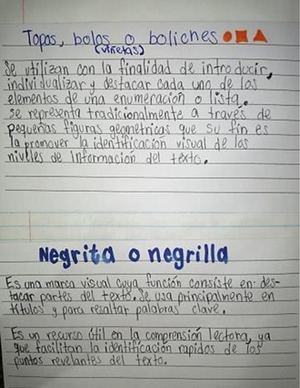 Topos, bolos o boliches
(viñetas)
Se utilizan con la finalidad de introducir,
individualizar y destacar cada uno de los
elementos de una enumeración o lista.
se representa tradicionalmente a través de
pequeñas figuras geométricas que su fin es
la promover la identificación visual de los
niveles de Información del texto.
Negrita o negrilla
Es una marca visual cuya función consiste en des-
tacar partes del texto. Se usa principalmente en
títulos y para resaltar palabras clave.
Es un recurso útil en la comprensión lectora, ya
que facilitan la identificación rapidos de los
puntos revelantes del texto.